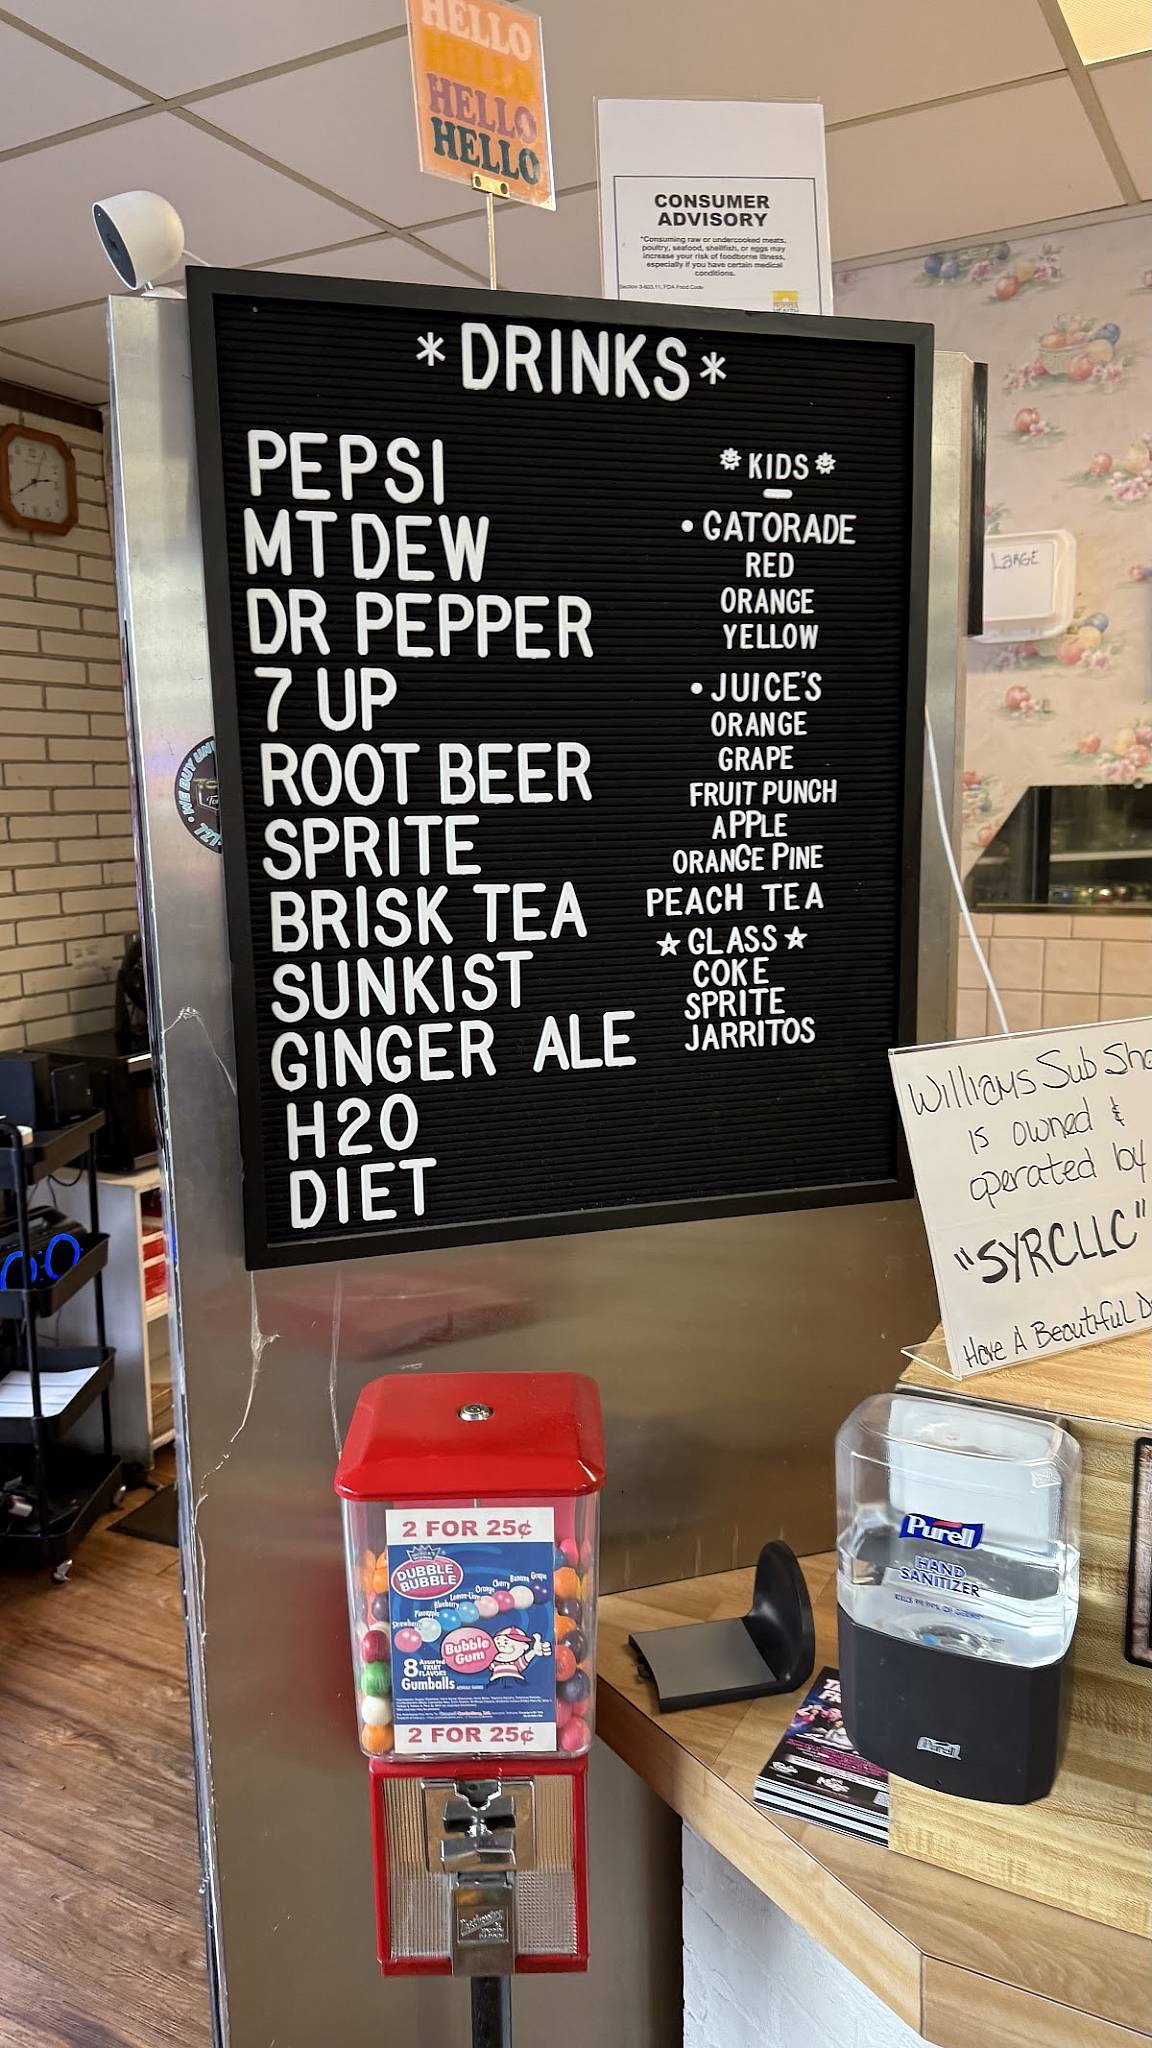 HELLO
HELLO
HELLO
HELLO
CONSUMER
ADVISORY
*Consuming raw or undercooked meats,
poultry, seafood, shellfish, or eggs may
increase your risk of foodborne illness,
especially if you have certain medical
conditions.
Section 3-603.11, FDA Food Code
*DRINKS*
PEPSI
MT DEW
DR PEPPER
7 UP
ROOT BEER
SPRITE
BRISK TEA
SUNKIST
GINGER ALE
H2O
DIET
KIDS
• GATORADE
RED
ORANGE
YELLOW
• JUICE'S
ORANGE
GRAPE
FRUIT PUNCH
APPLE
ORANGE PINE
PEACH TEA
☆ GLASS ☆
COKE
SPRITE
JARRITOS
LARGE
• WE BUY
Williams Sub Sho
is owned &
operated by
"SYRCLLC"
Have A Beautiful D
2 FOR 25¢
DUBBLE
BUBBLE
Strawberry
Pineapple
Blueberry
Lemon-Lime
Orange
Cherry
Banana
Grape
Bubble
Gum
8 Assorted
FRUIT
FLAVORS
Gumballs
2 FOR 25¢
Purell
HAND
SANITIZER
Purell